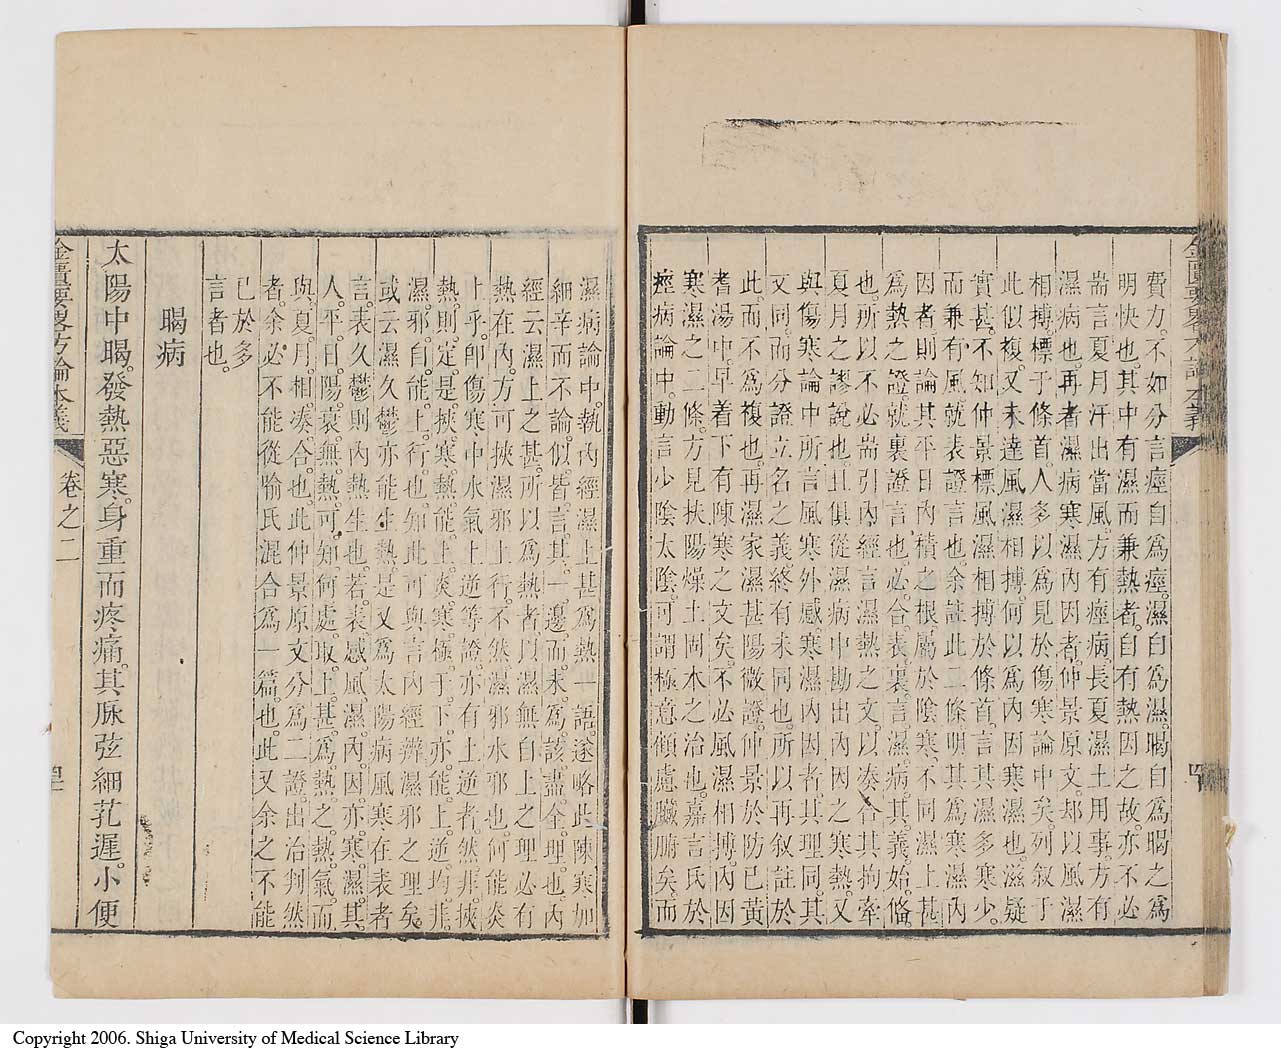 費力不如分言痙自爲痙。濕自爲濕。暍自爲暍之爲
明快也。其中有濕而兼熱者。自有熱因之故。亦不必
耑言夏月汗出當風。方有痙病。長夏濕土用事。方有
濕病也。再者濕病寒濕內因者。仲景原文。却以風濕
相搏標于條首。人多以爲見於傷寒論中矣。列叙于
此似複。又未達風濕相搏何以爲內因寒濕也。滋疑
實甚。不知仲景標風濕相搏於條首。言其濕多寒少。
而兼有風。就表證言也。余註此二條。明其爲寒濕內
因者。則論其平日內積之根屬於陰寒。不同濕上甚
爲熱之證。就裏證言也。必合表裏。言濕病。其義始俻
也。所以不必耑引內經言濕熱之文。以凑合其拘牽
夏月之謬說也。且俱從濕病中勘出內因之寒熱。又
與傷寒論中所言風寒外感寒濕內因者。其理同。其
文同。而分證立名之義。終有未同也。所以再叙註於
此。而不爲複也。再濕家濕甚陽微證。仲景於防己黃
耆湯中。早着下有陳寒之文矣。不必風濕相搏。內因
寒濕之二條。方見扶陽燥土固本之治也。嘉言氏於
痙病論中。動言少陰太陰。可謂極意傾慮臟腑矣。而
金匱要略方論本義
濕病論中。執內經濕上甚爲熱一語。遂略此陳寒加
細辛而不論。似皆言其一邊。而未爲該盡全理也。內
經云濕上之甚。所以爲熱者。以濕無自上之理。必有
熱在內。方可挾濕邪上行。不然濕邪水邪也。何能炎
上乎。卽傷寒中水氣上逆等證。亦有上逆者。然非挾
熱。則定是挾寒。熱能上炎。寒極于下。亦能上逆。均非
濕邪。自能上行也。知此可與言內經辨濕邪之理矣。
或云濕久鬱亦能生熱。是又爲太陽病風寒在表者
言。表久鬱則內熱生也。若表感風濕。內因亦寒濕。其
人平日陽衰無熱可知。何處取上甚爲熱之熱氣。而
與夏月相凑合也。此仲景原文分爲二證。出治判然
者。余必不能從喻氏混合爲一篇也。此又余之不能
已於多
言者也。
暍病
太陽中暍。發熱惡寒。身重而疼痛。其脉弦細芤遲。小便
金匱要略方論本義
卷之二
Copyright 2006. Shiga University of Medical Science Library